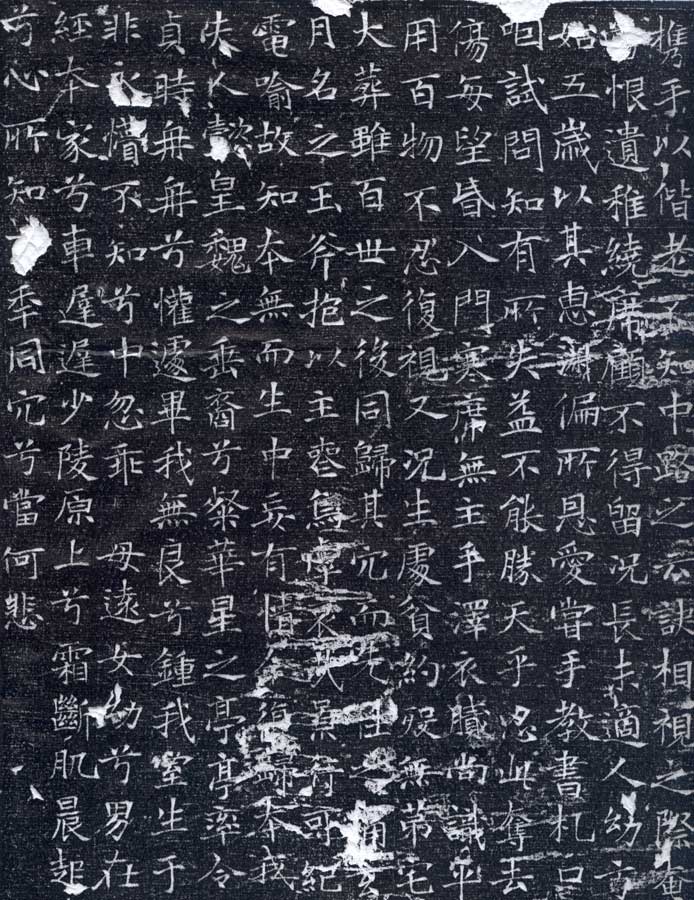 携手以偕老不知中路之云訣相視之際奄
恨遺稚繞席顧不得留況長未適人幼方
始五歲以其惠淑偏所恩愛嘗手教書札口
咽試問知有所失益不能勝天乎忍此奪去
傷每望昏入門寒席無主手澤衣膩尚識平
用百物不忍復視又況生處貧約歿無第宅
大葬雖百世之後同歸其穴而先往之痛玄
月名之玉斧抱以主喪烏虖哀哉景行可紀
電喻故知本無而生中妄有情今復歸本我
夫人懿皇魏之垂裔兮粲華星之亭亭率令
貞時冉冉兮懽遽畢我無良兮鍾我室生于
非永懵不知兮中忽乖 母遠女幼兮男在
經本家兮車遲遲少陵原上兮霜斷肌晨起
兮心所知秊同穴兮當何悲